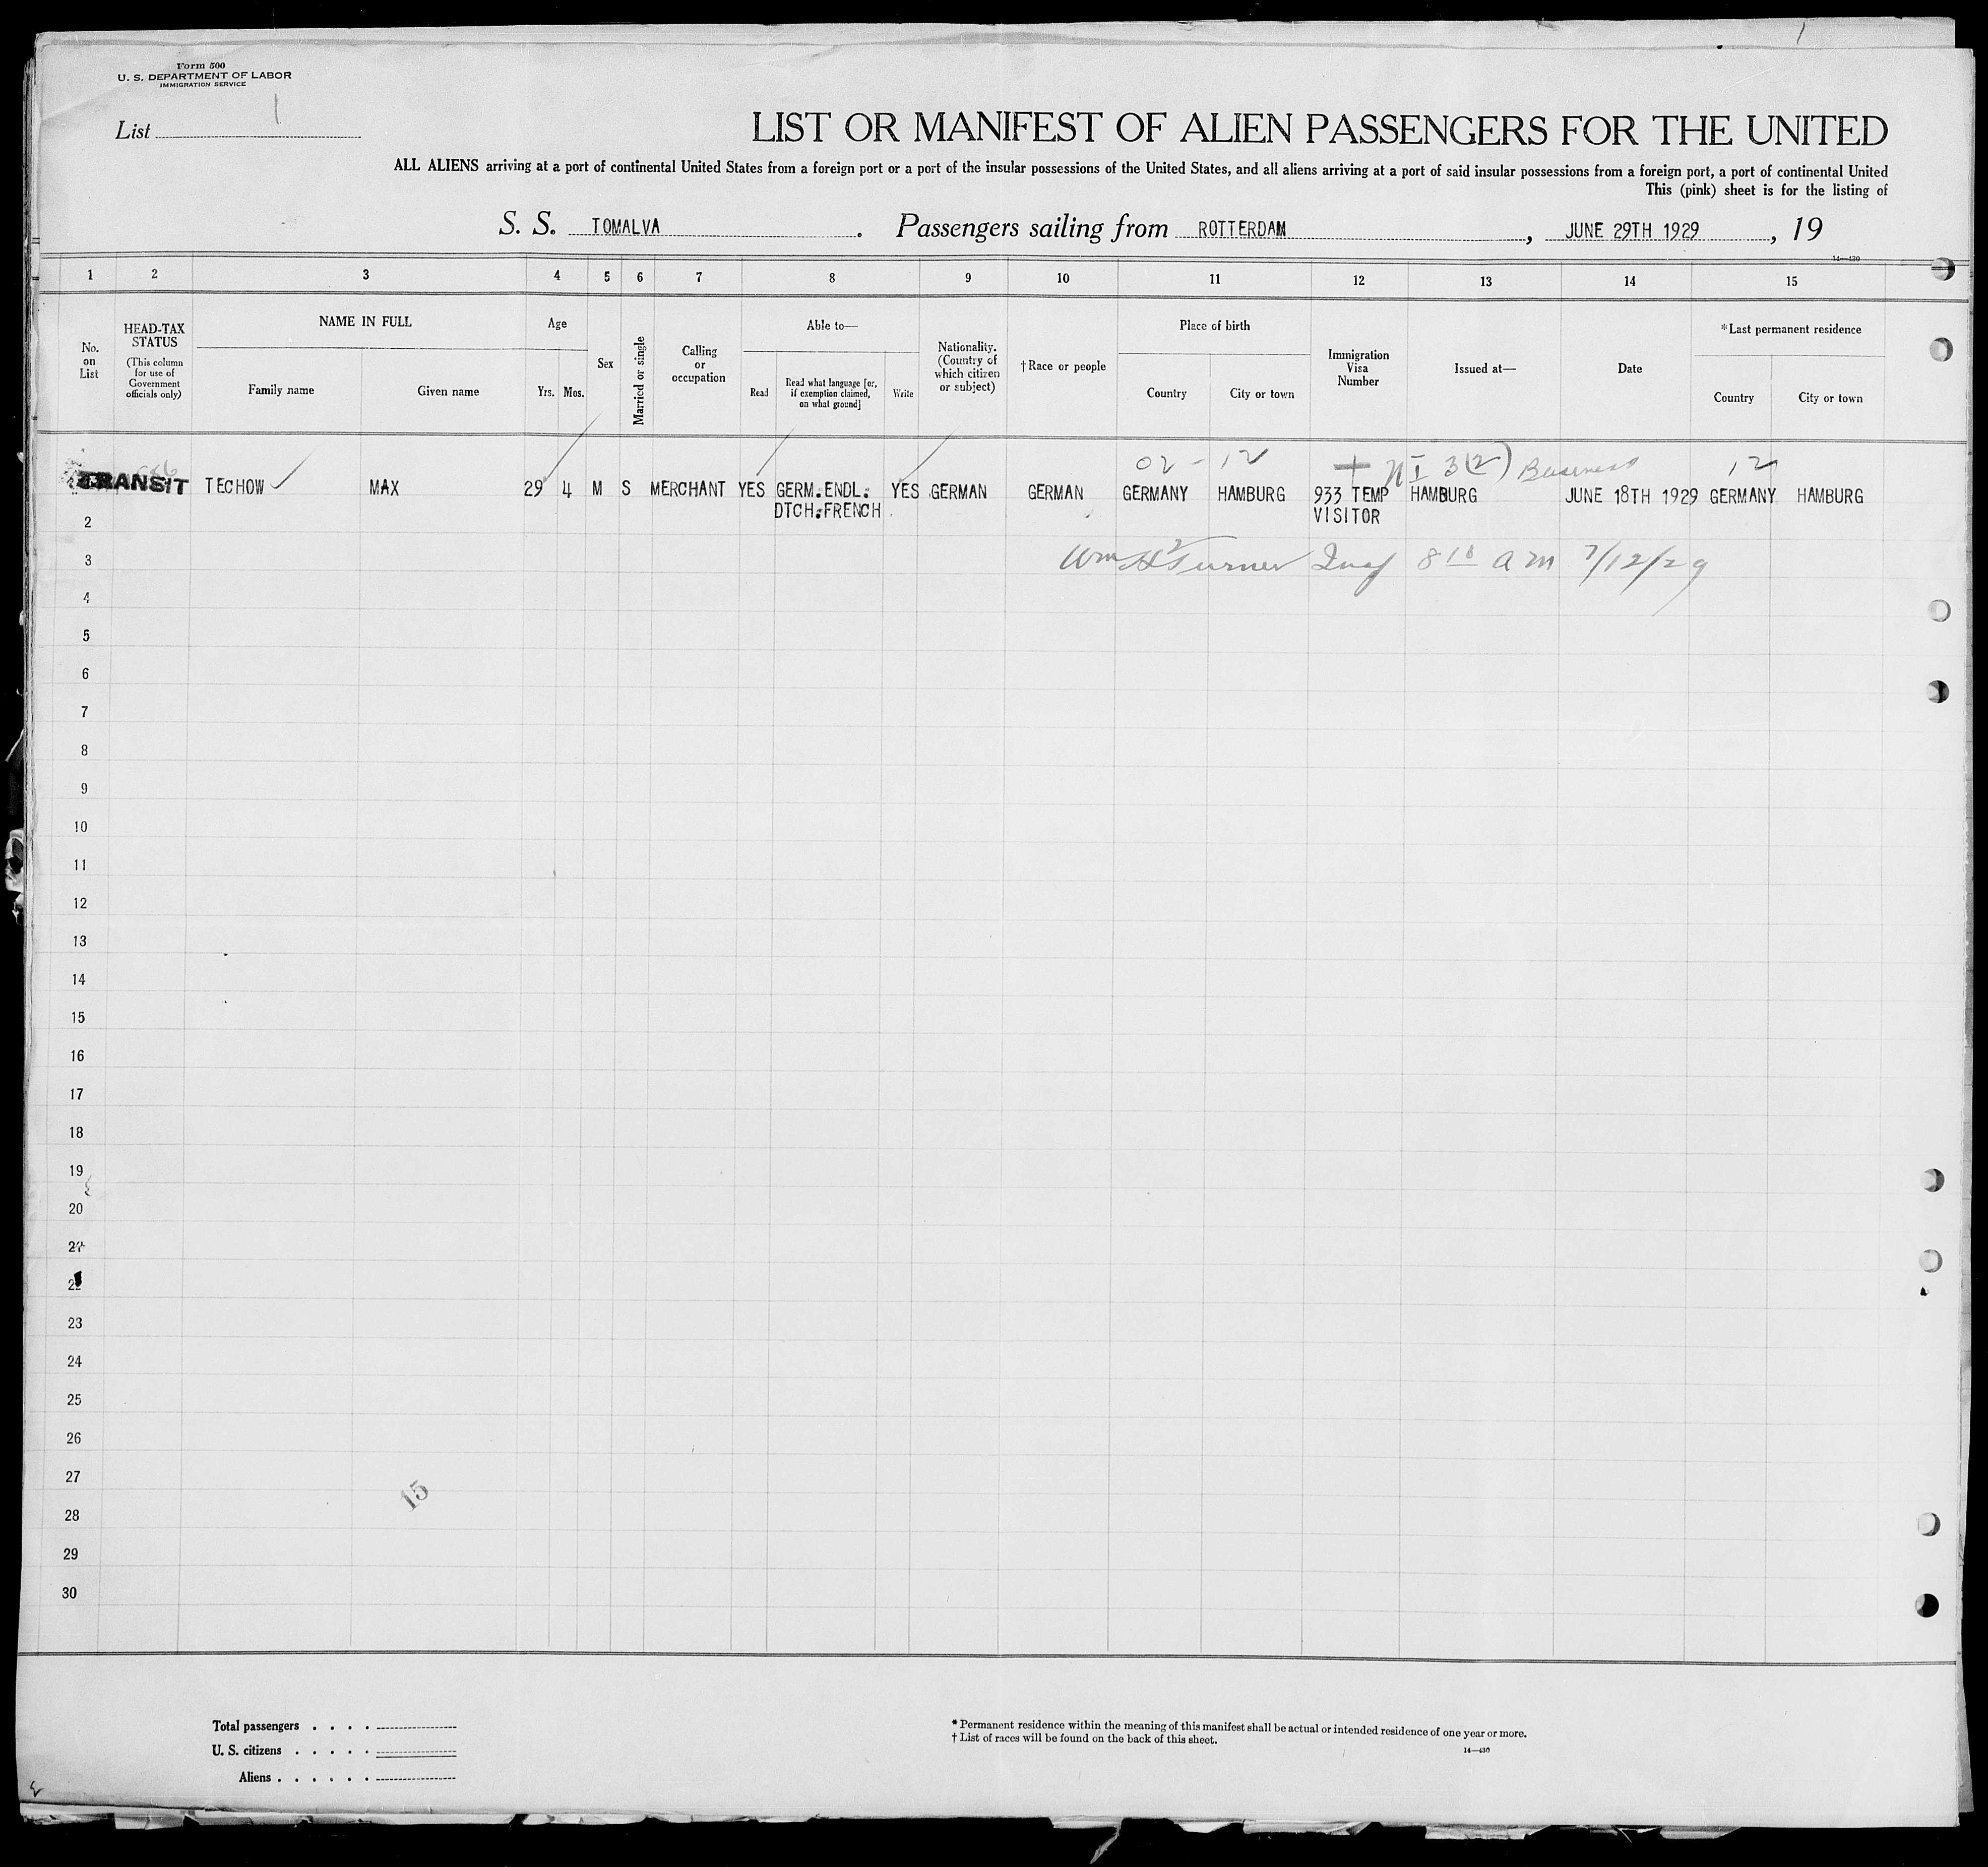 Form 500
U. S. DEPARTMENT OF LABOR
IMMIGRATION SERVICE
1
1
List
LIST OR MANIFEST OF ALIEN PASSENGERS FOR THE UNITED
ALL ALIENS arriving at a port of continental United States from a foreign port or a port of the insular possessions of the United States, and all aliens arriving at a port of said insular possessions from a foreign port, a port of continental United
This (pink) sheet is for the listing of
S. S. TOMALVA . Passengers sailing from ROTTERDAM , JUNE 29TH 1929 , 19
14—430
1 2 3 4 5 6 7 8 9 10 11 12 13 14 15
No. on List
HEAD-TAX STATUS
(This column for use of Government officials only)
NAME IN FULL
Family name Given name
Age
Yrs. Mos.
Sex
Married or single
Calling or occupation
Able to—
Read
Read what language [or, if exemption claimed, on what ground]
Write
Nationality. (Country of which citizen or subject)
† Race or people
Place of birth
Country City or town
Immigration Visa Number
Issued at—
Date
*Last permanent residence
Country City or town
02 - 12 + NI 3(2) Business 12
TRANSIT TECHOW MAX 29 4 M S MERCHANT YES GERM.ENDL: YES GERMAN GERMAN GERMANY HAMBURG 933 TEMP HAMBURG JUNE 18TH 1929 GERMANY HAMBURG
DTCH:FRENCH VISITOR
2
3 Wm H Turner Insp 8 10 a m 7/12/29
4
5
6
7
8
9
10
11
12
13
14
15
16
17
18
19
20
21
22
23
24
25
26
27
15
28
29
30
Total passengers . . . .
U. S. citizens . . . . .
Aliens . . . . . .
* Permanent residence within the meaning of this manifest shall be actual or intended residence of one year or more.
† List of races will be found on the back of this sheet.
14—430